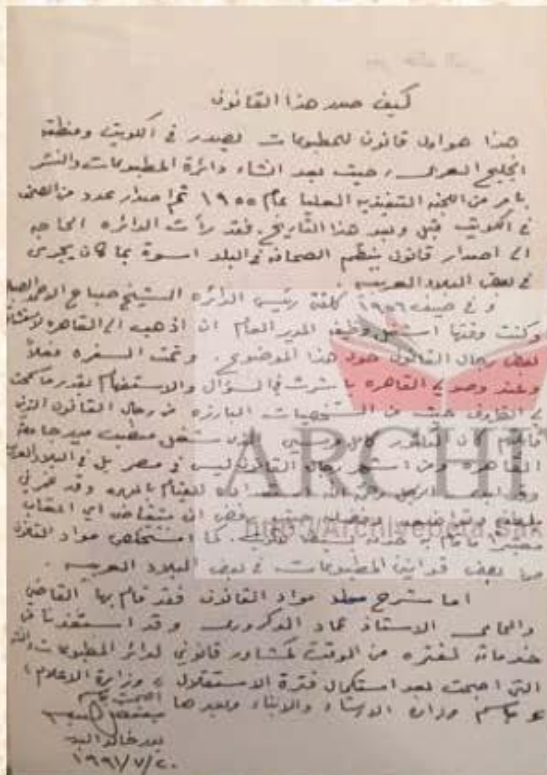 كيف صدر هذا القانون
هذا هو اول قانون للمطبوعات يصدر في الكويت ومنطقة
الخليج العربي، حيث بعد انشاء دائرة المطبوعات والنشر
بامر من اللجنة التنفيذية العليا عام ١٩٥٥ تم اصدار عدد من الصحف
في الكويت قبل وبعد هذا التاريخ. فقد رأت الدائرة الحاجه
الى اصدار قانون ينظم الصحافة في البلد اسوة بما كان يجرى
في بعض البلاد العربيه.
و في صيف ١٩٥٦ كلفني رئيس الدائره الشيخ صباح الاحمد
وكنت وقتها اشغل وظيفة المدير العام ان اذهب الى القاهره
بعض رجال القانون حول هذا الموضوع. وتمت السفره فعلا
وعند وصولي القاهره باشرت في السؤال والاستفهام بقدر ما سمحت
لي الظروف حيث من الشخصيات البارزه من رجال القانون الذين
كان الدكتور الذي شغل منصب مدير جامعة
القاهره ومن اشهر رجال القانون ليس في مصر بل في البلاد
للقيام بالمهمه وقد
بلطفه وتواضعه رفض ان يتقاضى اي
ARCHI
http://Archive
كما استخلص مواد القانون
من بعض قوانين المطبوعات في بعض البلاد العربيه.
اما شرح مواد القانون فقد قام بها القاضي
والمحامي الاستاذ عماد الدكروري وقد استفدنا من
خدماته لفتره من الوقت كمشاور قانوني لدائرة المطبوعات والنشر
التي اصبحت بعد استكمال فترة الاستقلال وزارة الاعلام
باسم وزارة الارشاد والانباء وبعدها اصبحت باسم
بدر خالد البدر
٢٠/٧/١٩٩١